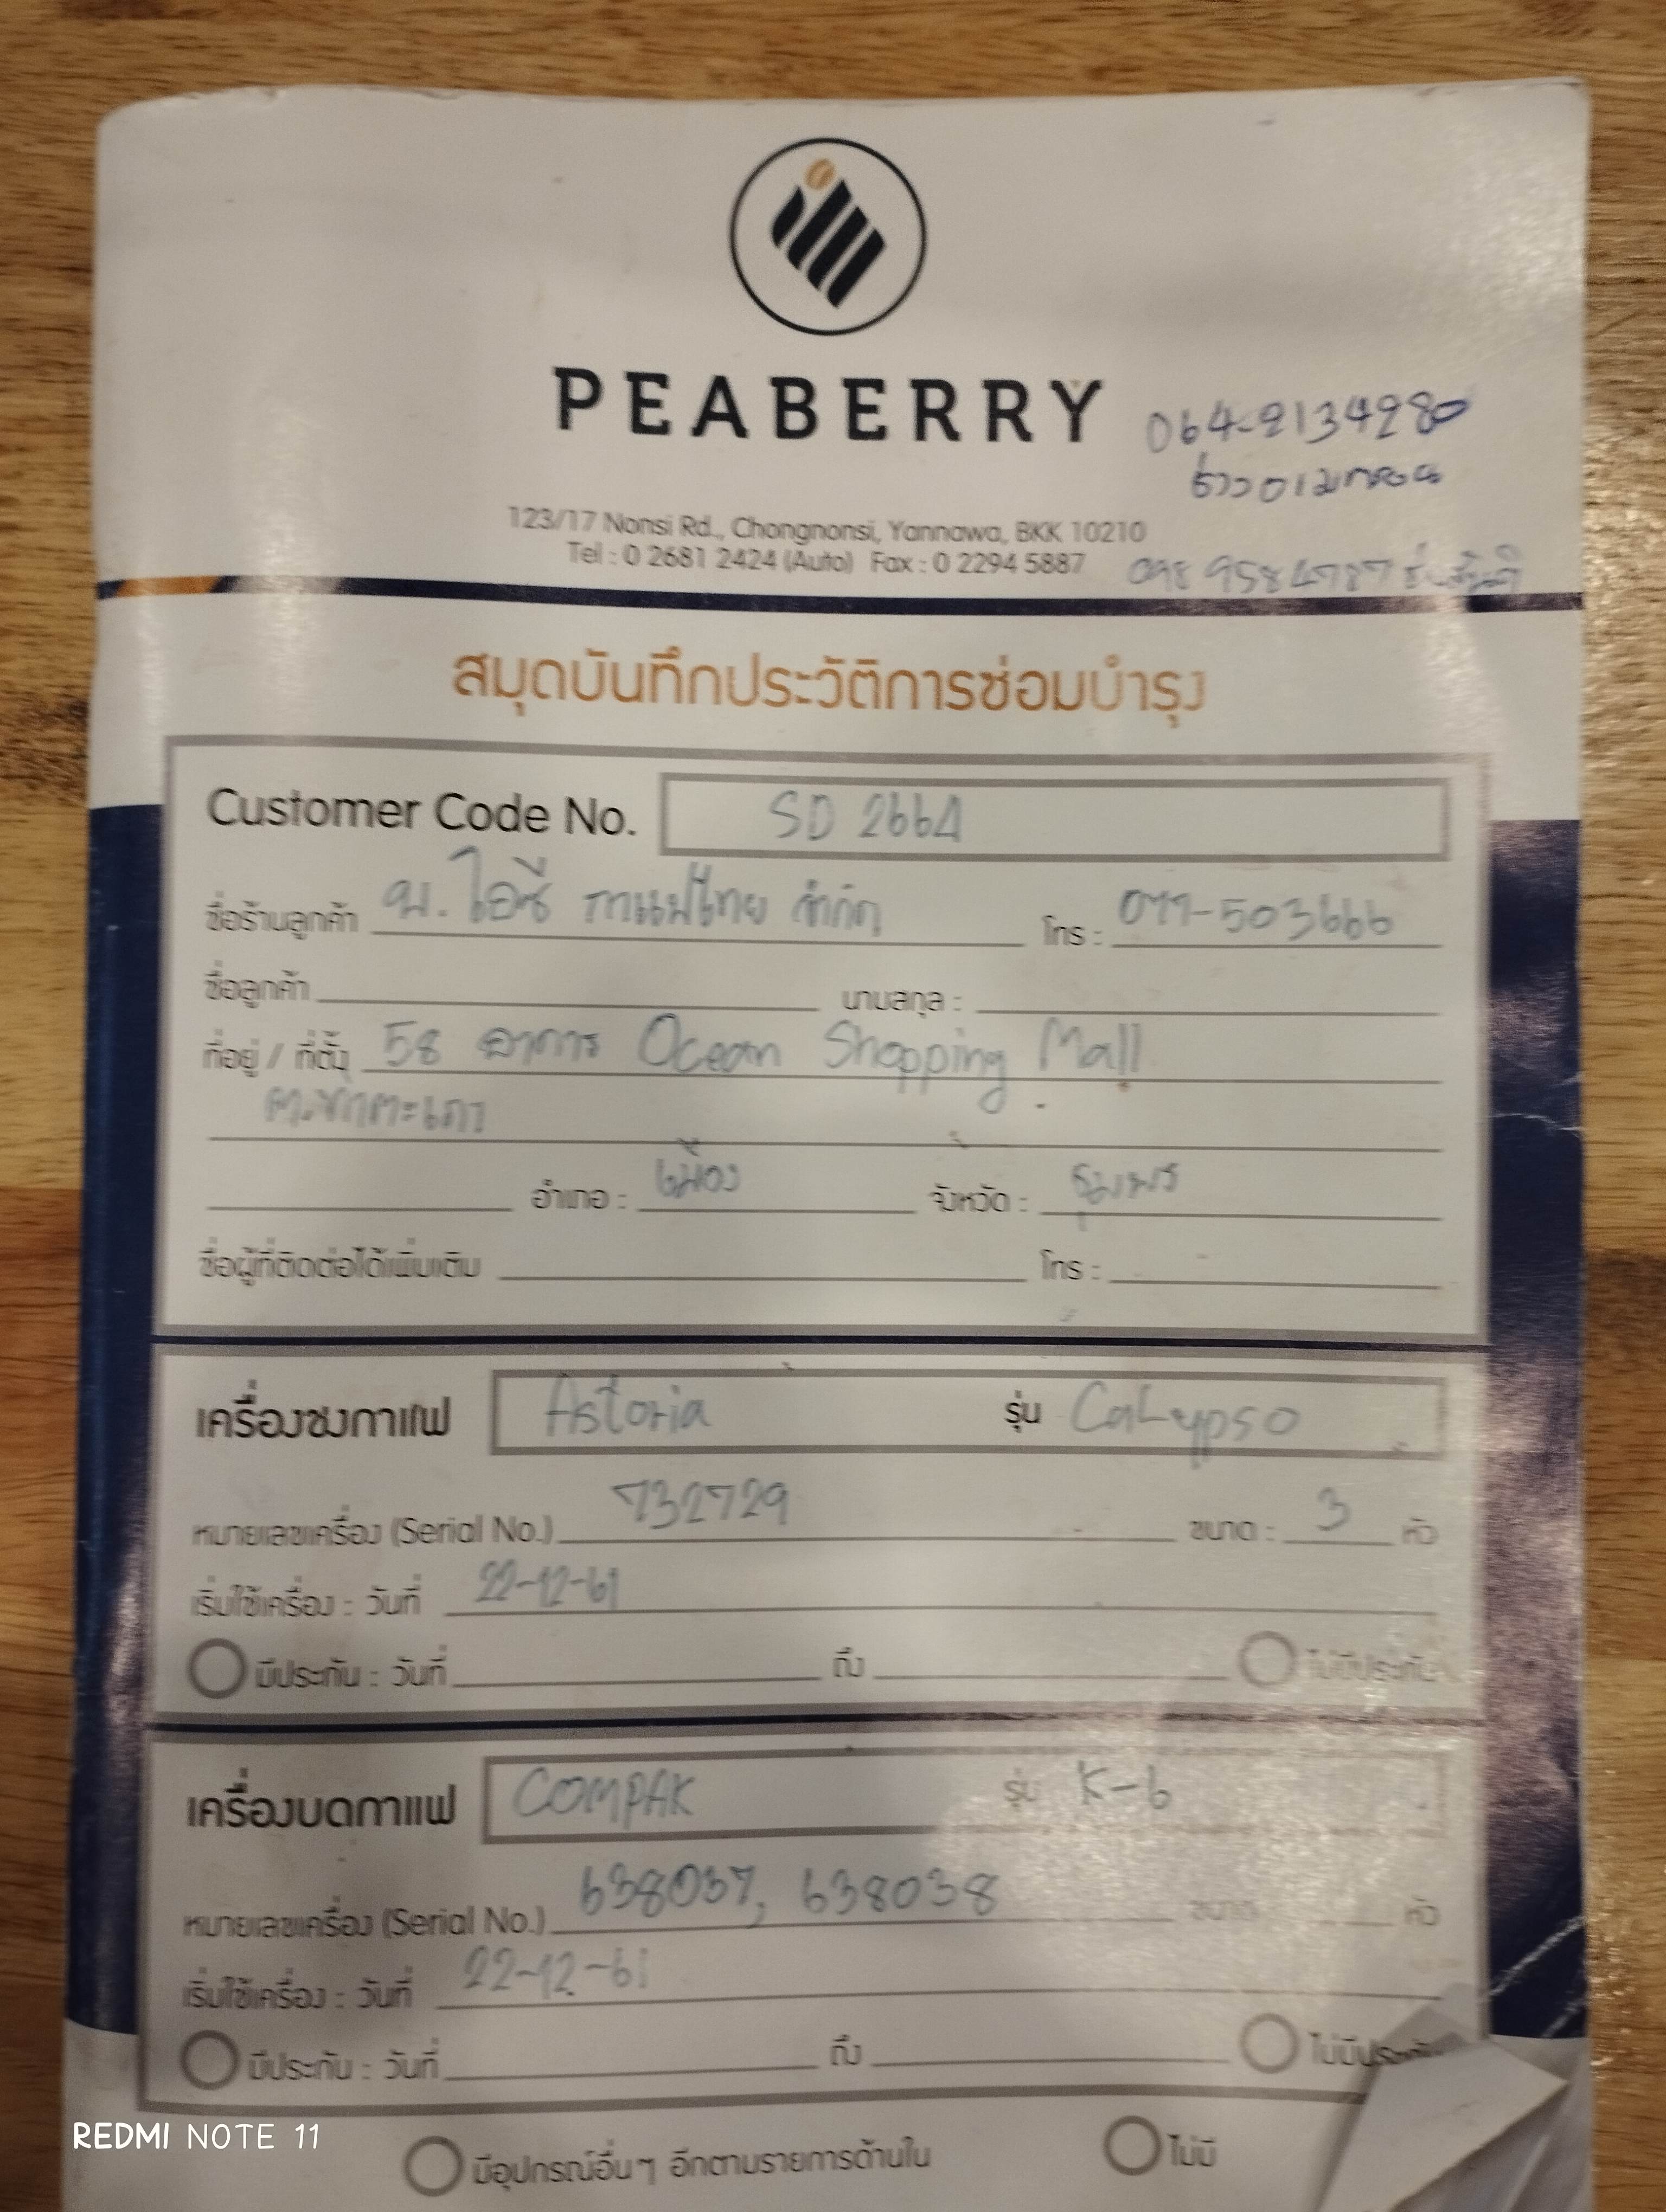 PEABERRY
064-2134280
123/17 Nonsi Rd., Chongnonsi, Yannawa, BKK 10210
Tel : 0 2681 2424 (Auto) Fax : 0 2294 5887
098 958
สมุดบันทึกประวัติการซ่อมบำรุง
Customer Code No. SD 2664
ชื่อร้านลูกค้า บ. ไอซี กาแฟไทย จำกัด โทร : 077-503666
ชื่อลูกค้า นามสกุล :
ที่อยู่ / ที่ตั้ง 58 อาคาร Ocean Shopping Mall
ต.ท่าตะเภา
อำเภอ : เมือง จังหวัด : ชุมพร
ชื่อผู้ที่ติดต่อได้เพิ่มเติม โทร :
เครื่องชงกาแฟ Astoria รุ่น Calypso
หมายเลขเครื่อง (Serial No.) 732729 ขนาด : 3 หัว
เริ่มใช้เครื่อง : วันที่ 22-12-61
มีประกัน : วันที่ ถึง ไม่มีประกัน
เครื่องบดกาแฟ COMPAK รุ่น K-6
หมายเลขเครื่อง (Serial No.) 638037, 638038 ขนาด หัว
เริ่มใช้เครื่อง : วันที่ 22-12-61
มีประกัน : วันที่ ถึง ไม่มีประกัน
มีอุปกรณ์อื่นๆ อีกตามรายการด้านใน ไม่มี
REDMI NOTE 11